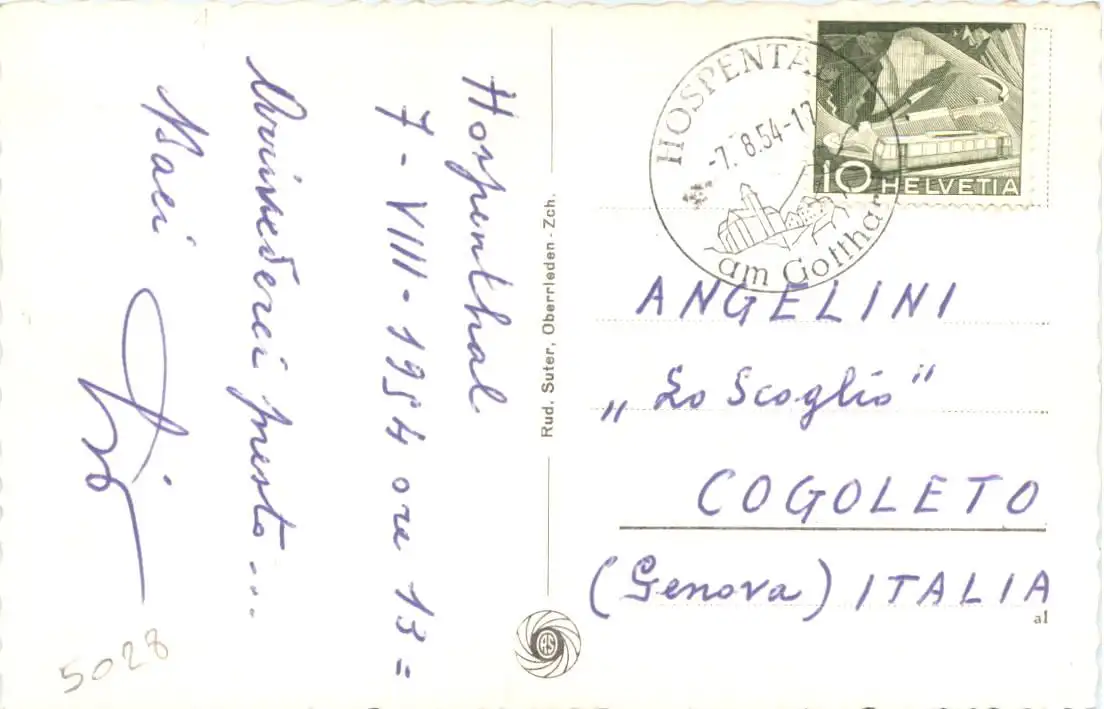 Hospenthal
7-VIII-1954 ore 13=
Arrivederci presto...
Baci
5028
Rud. Suter, Oberrieden-Zch.
AS
HOSPENTAL
-7.8.54-17
am Gotthard
10 HELVETIA
ANGELINI
„Lo Scoglio"
COGOLETO
(Genova) ITALIA
al